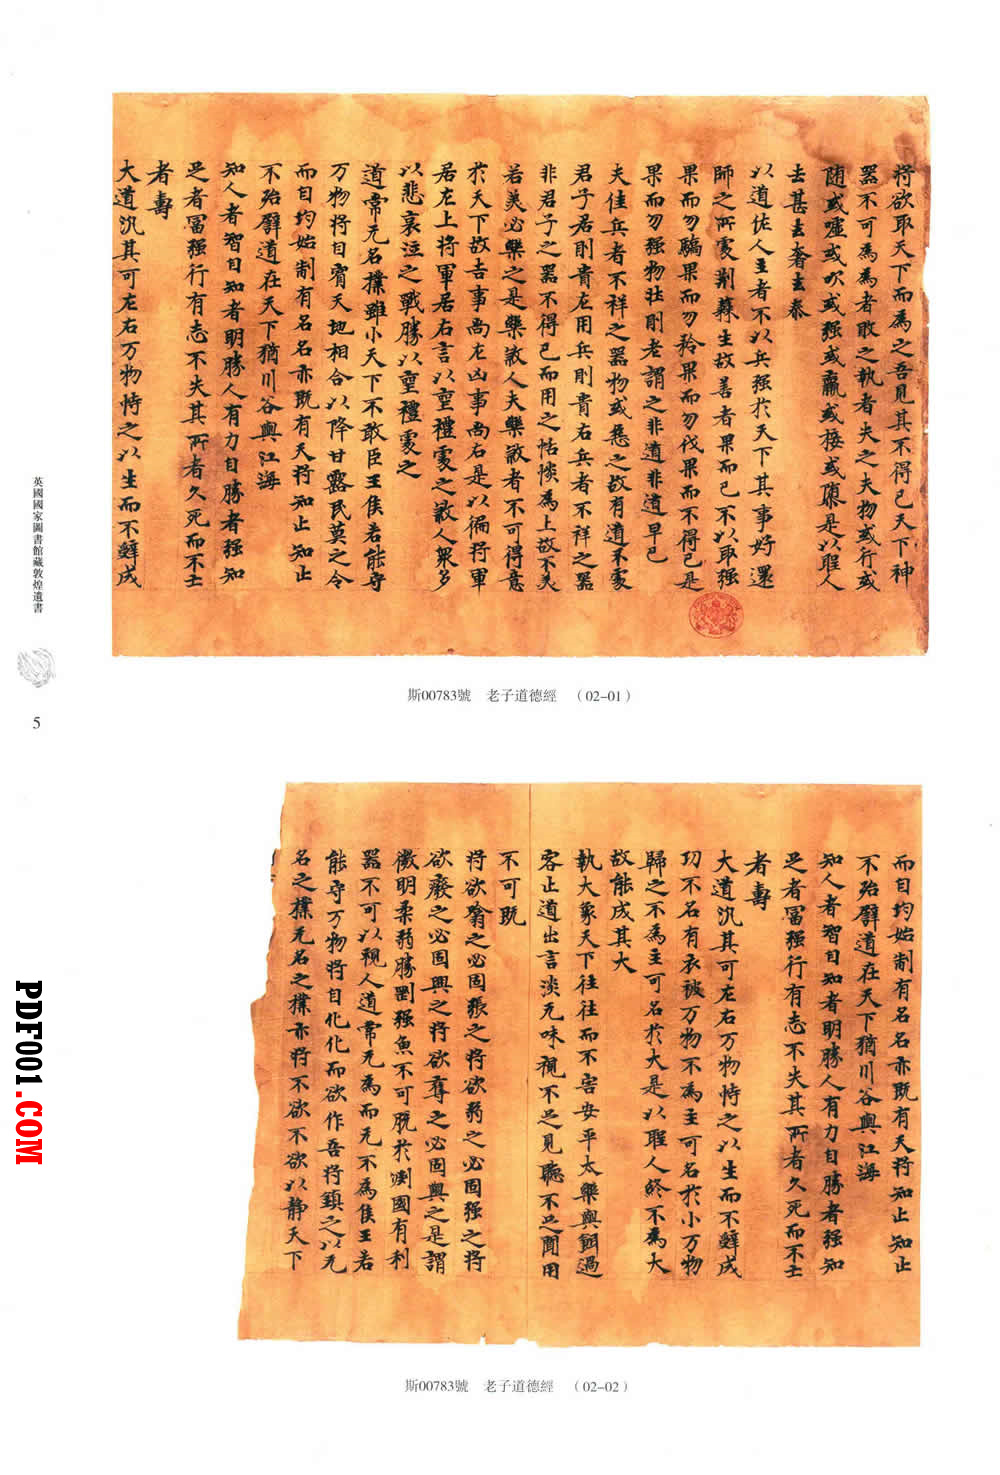 將欲取天下而為之吾見其不得已天下神
器不可為為者敗之執者失之夫物或行或
隨或嘘或吹或强或羸或接或隳是以聖人
去甚去奢去泰
以道佐人主者不以兵强於天下其事好還
師之所處荆蕀生故善者果而已不以取强
果而勿驕果而勿矜果而勿伐果而不得已是
果而勿强物壯則老謂之非道非道早已
夫佳兵者不祥之器物或惡之故有道不處
君子居則貴左用兵則貴右兵者不祥之器
非君子之器不得已而用之恬惔為上故不美
若美必樂之是樂煞人夫樂煞者不可得意
於天下故吉事尚左凶事尚右是以偏將軍
居左上將軍居右言以喪禮處之煞人衆多
以悲哀泣之戰勝以喪禮處之
道常无名樸雖小天下不敢臣王侯若能守
万物將自賓天地相合以降甘露民莫之令
而自均始制有名名亦既有天將知止知止
不殆譬道在天下猶川谷與江海
知人者智自知者明勝人有力自勝者强知
足者富强行有志不失其所者久死而不亡
者壽
大道汎其可左右万物恃之以生而不辭成
斯00783號 老子道德經 （02-01）
英國國家圖書館藏敦煌遺書
5
而自均始制有名名亦既有天將知止知止
不殆譬道在天下猶川谷與江海
知人者智自知者明勝人有力自勝者强知
足者富强行有志不失其所者久死而不亡
者壽
大道汎其可左右万物恃之以生而不辭成
功不名有衣被万物不為主可名於小万物
歸之不為主可名於大是以聖人終不為大
故能成其大
執大象天下往往而不害安平太樂與餌過
客止道出言淡无味視不足見聽不足聞用
不可既
將欲翕之必固張之將欲弱之必固强之將
欲癈之必固興之將欲奪之必固與之是謂
微明柔弱勝剛强魚不可脱於渕國有利
器不可以視人道常无為而无不為侯王若
能守万物將自化化而欲作吾將鎮之以无
名之樸无名之樸亦將不欲不欲以静天下
斯00783號 老子道德經 （02-02）
PDF001.COM